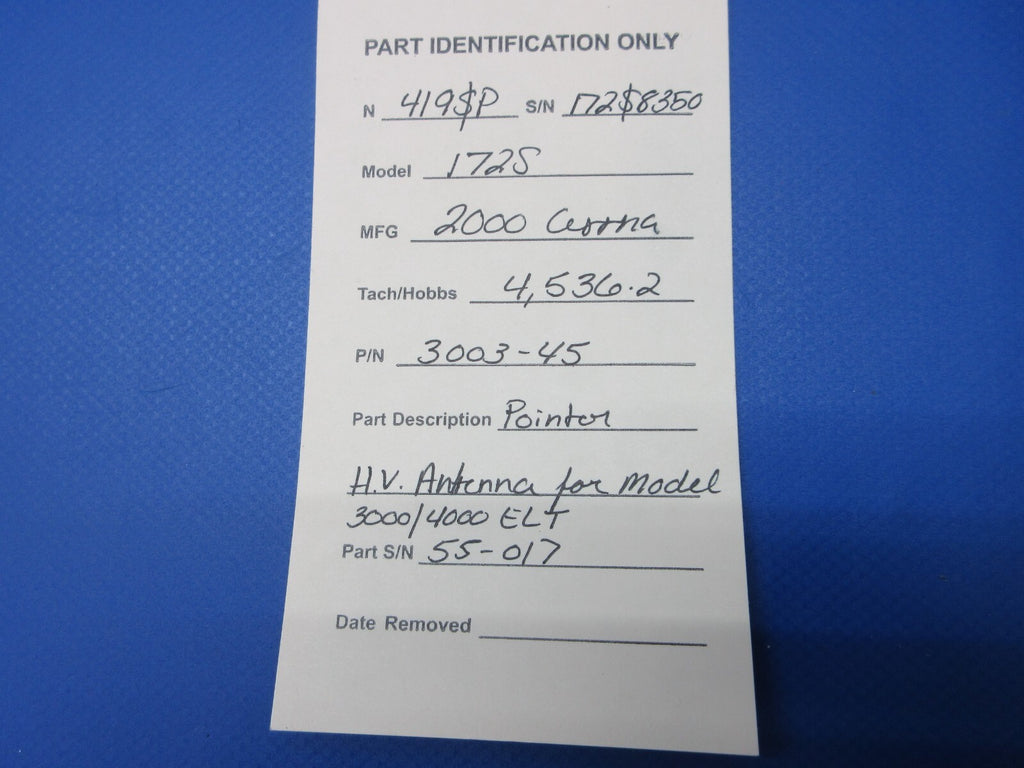 PART IDENTIFICATION ONLY
N 419$P S/N 172$8350
Model 172S
MFG 2000 Cessna
Tach/Hobbs 4,536.2
P/N 3003-45
Part Description Pointer
H.V. Antenna for Model
3000/4000 ELT
Part S/N 55-017
Date Removed